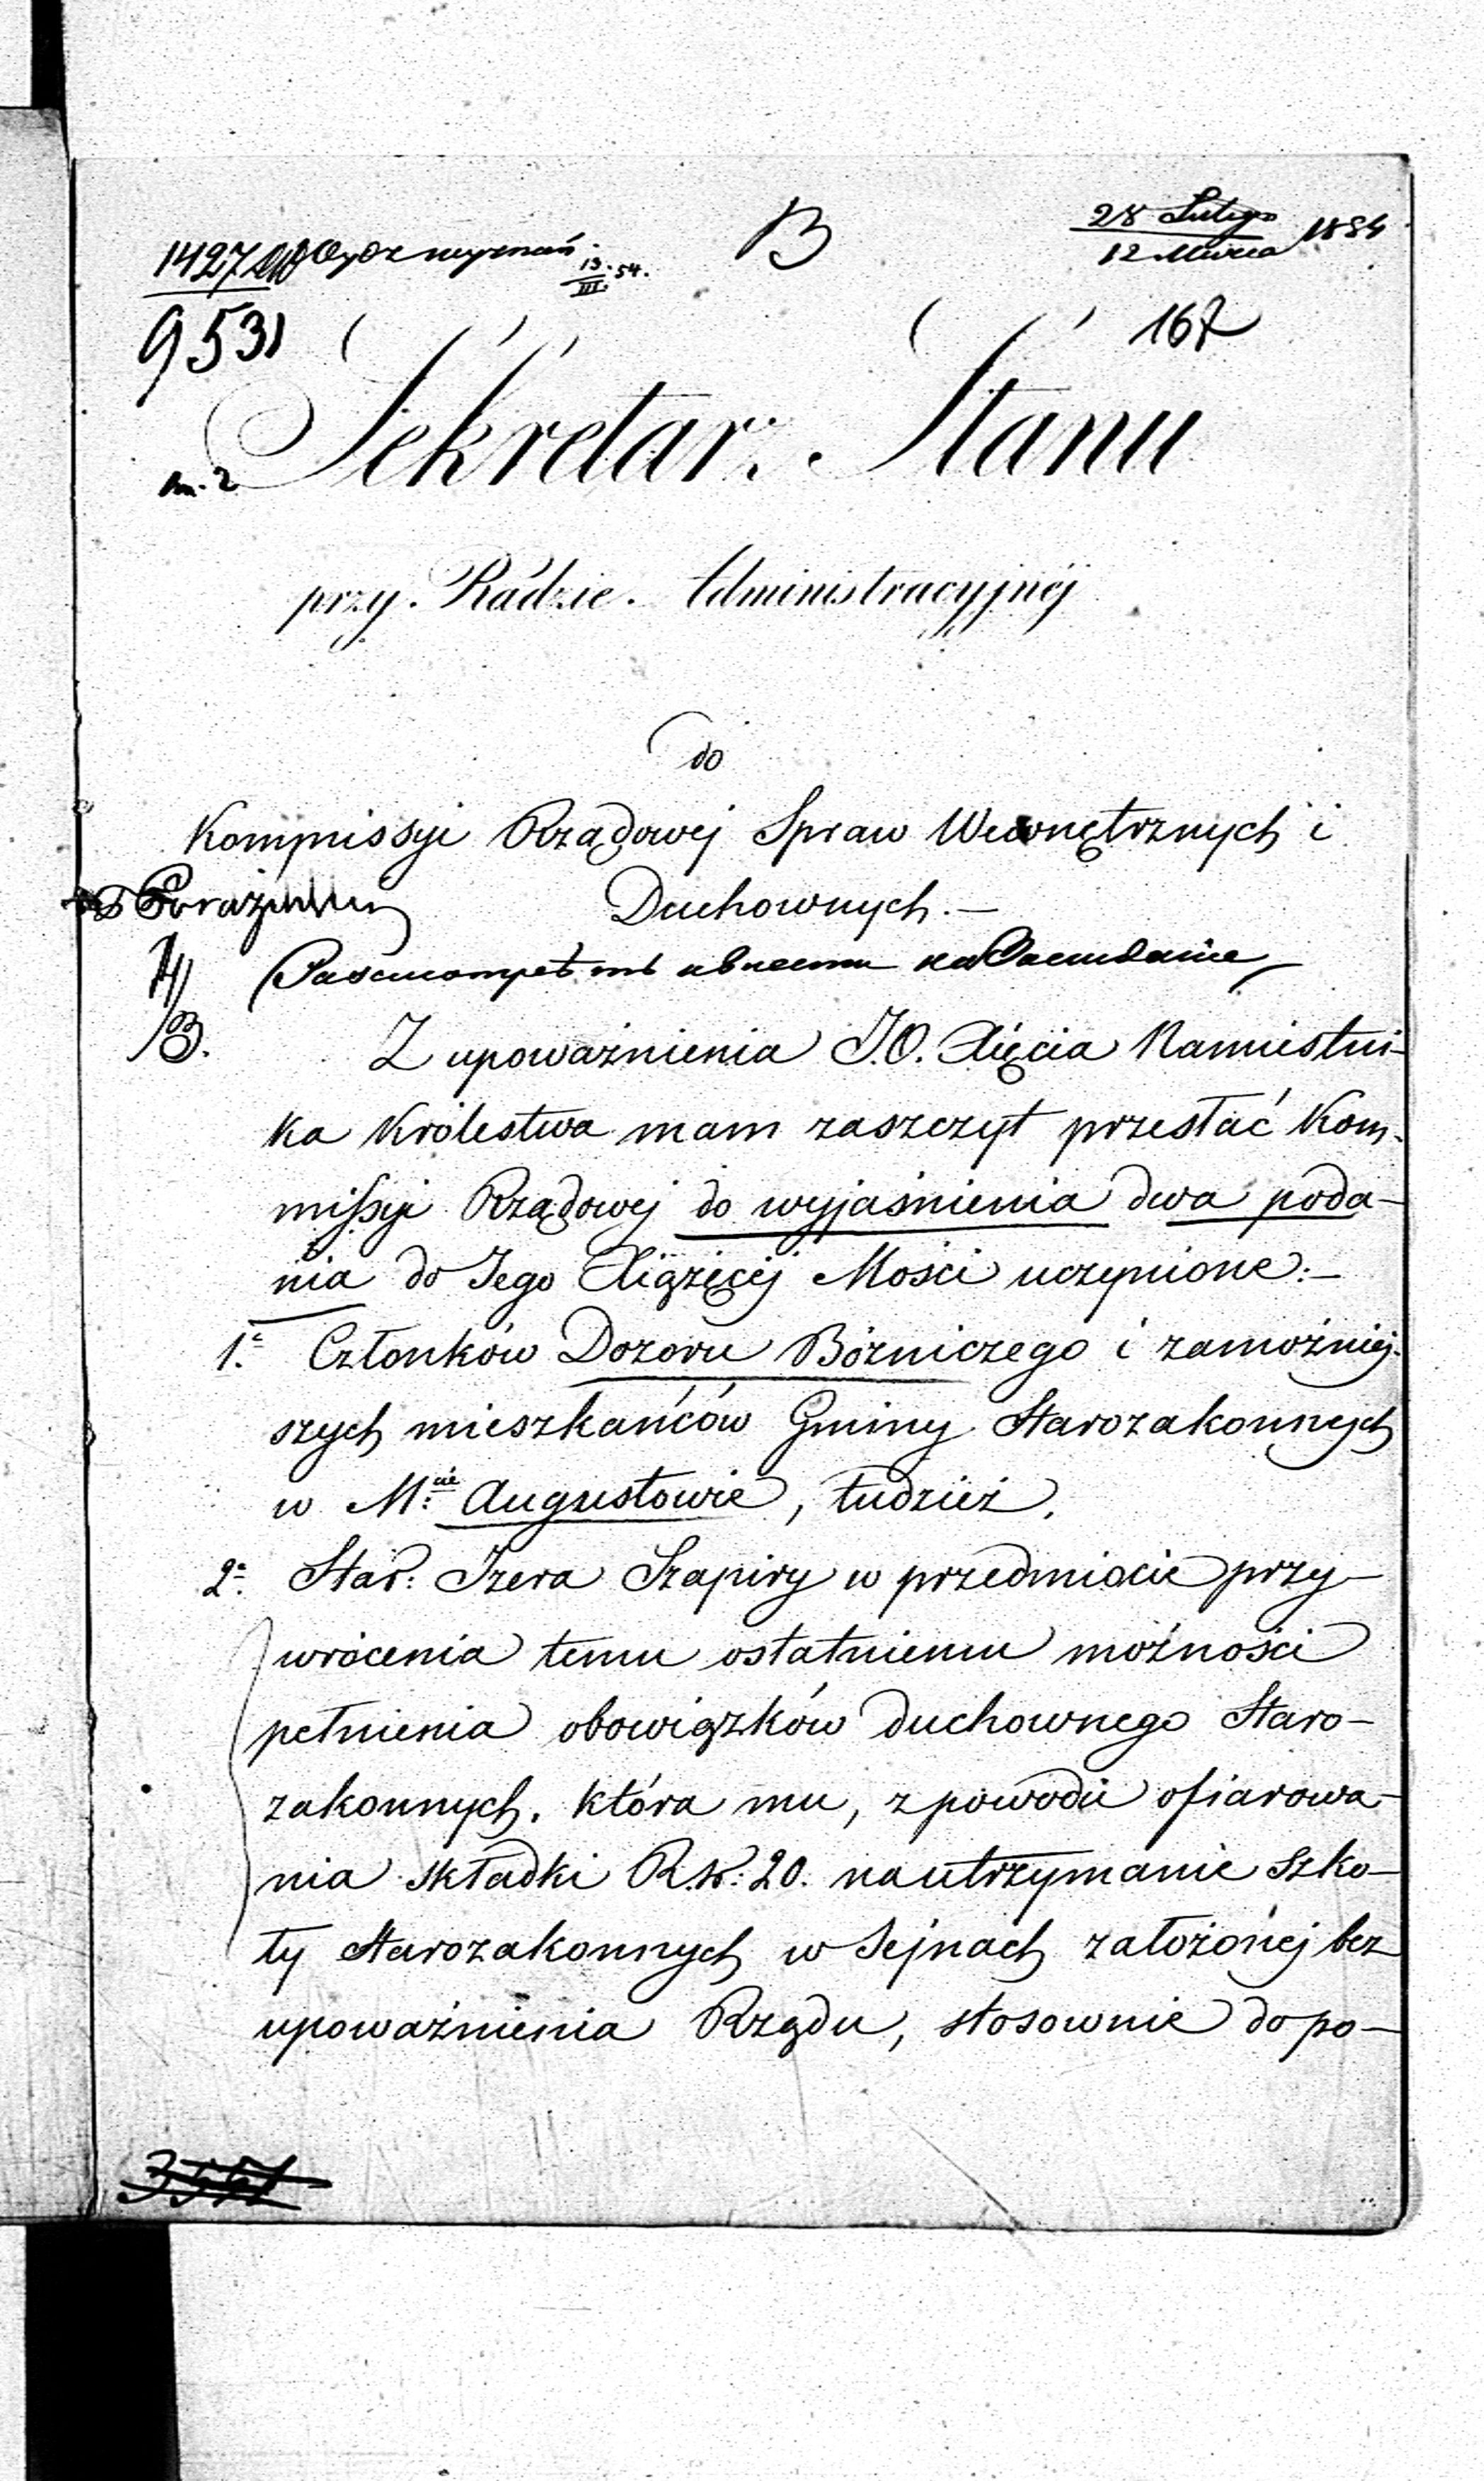 B
28 Lutego
12 Marca 1854
1427
13/III 54.
9531
167
Sekretar: Stanu
przy Radzie Administracyjnéj
do
Kommissyi Rządowej Spraw Wewnętrznych i
Duchownych.—
Z upoważnienia J.O. Xięcia Namiestni-
ka Królestwa mam zaszczyt przesłać Kom-
missyi Rządowej do wyjaśnienia dwa poda-
nia do Jego Xiążęcéj Mości uczynione:—
1. Członków Dozoru Bóżniczego i zamożniej-
szych mieszkańców Gminy Starozakonnych
w M:cie Augustowie, tudzież,
2. Star: Izera Szapiry w przedmiocie przy-
wrócenia temu ostatniemu możności
pełnienia obowiązków duchownego Staro-
zakonnych, która mu, z powodu ofiarowa-
nia składki R.sr: 20. na utrzymanie Szko-
ły Starozakonnych w Sejnach założonéj bez
upoważnienia Rządu, stosownie do po-